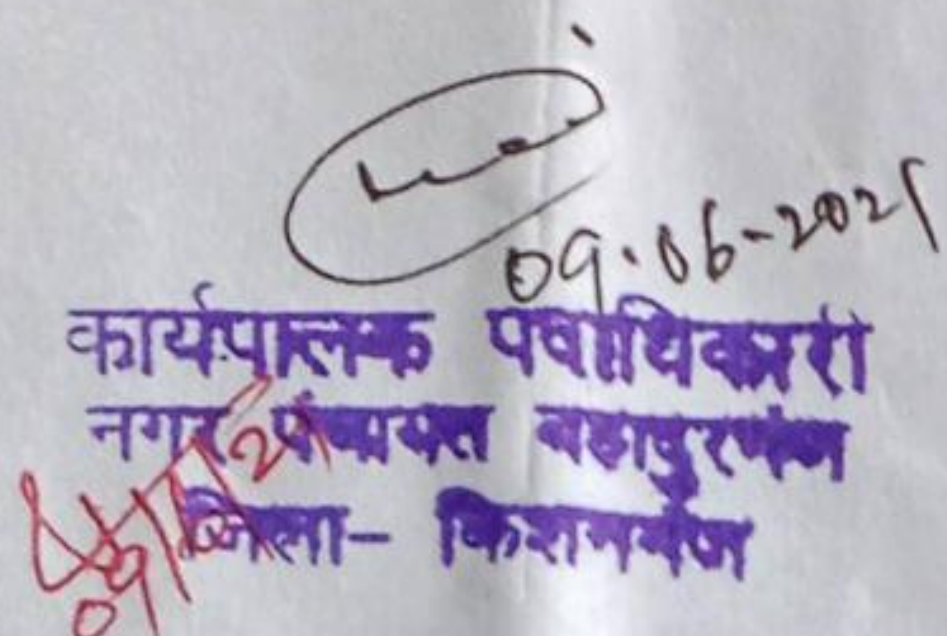 09.06-2021
कार्यपालक पदाधिकारी
नगर पंचायत बहादुरगंज
जिला- किशनगंज